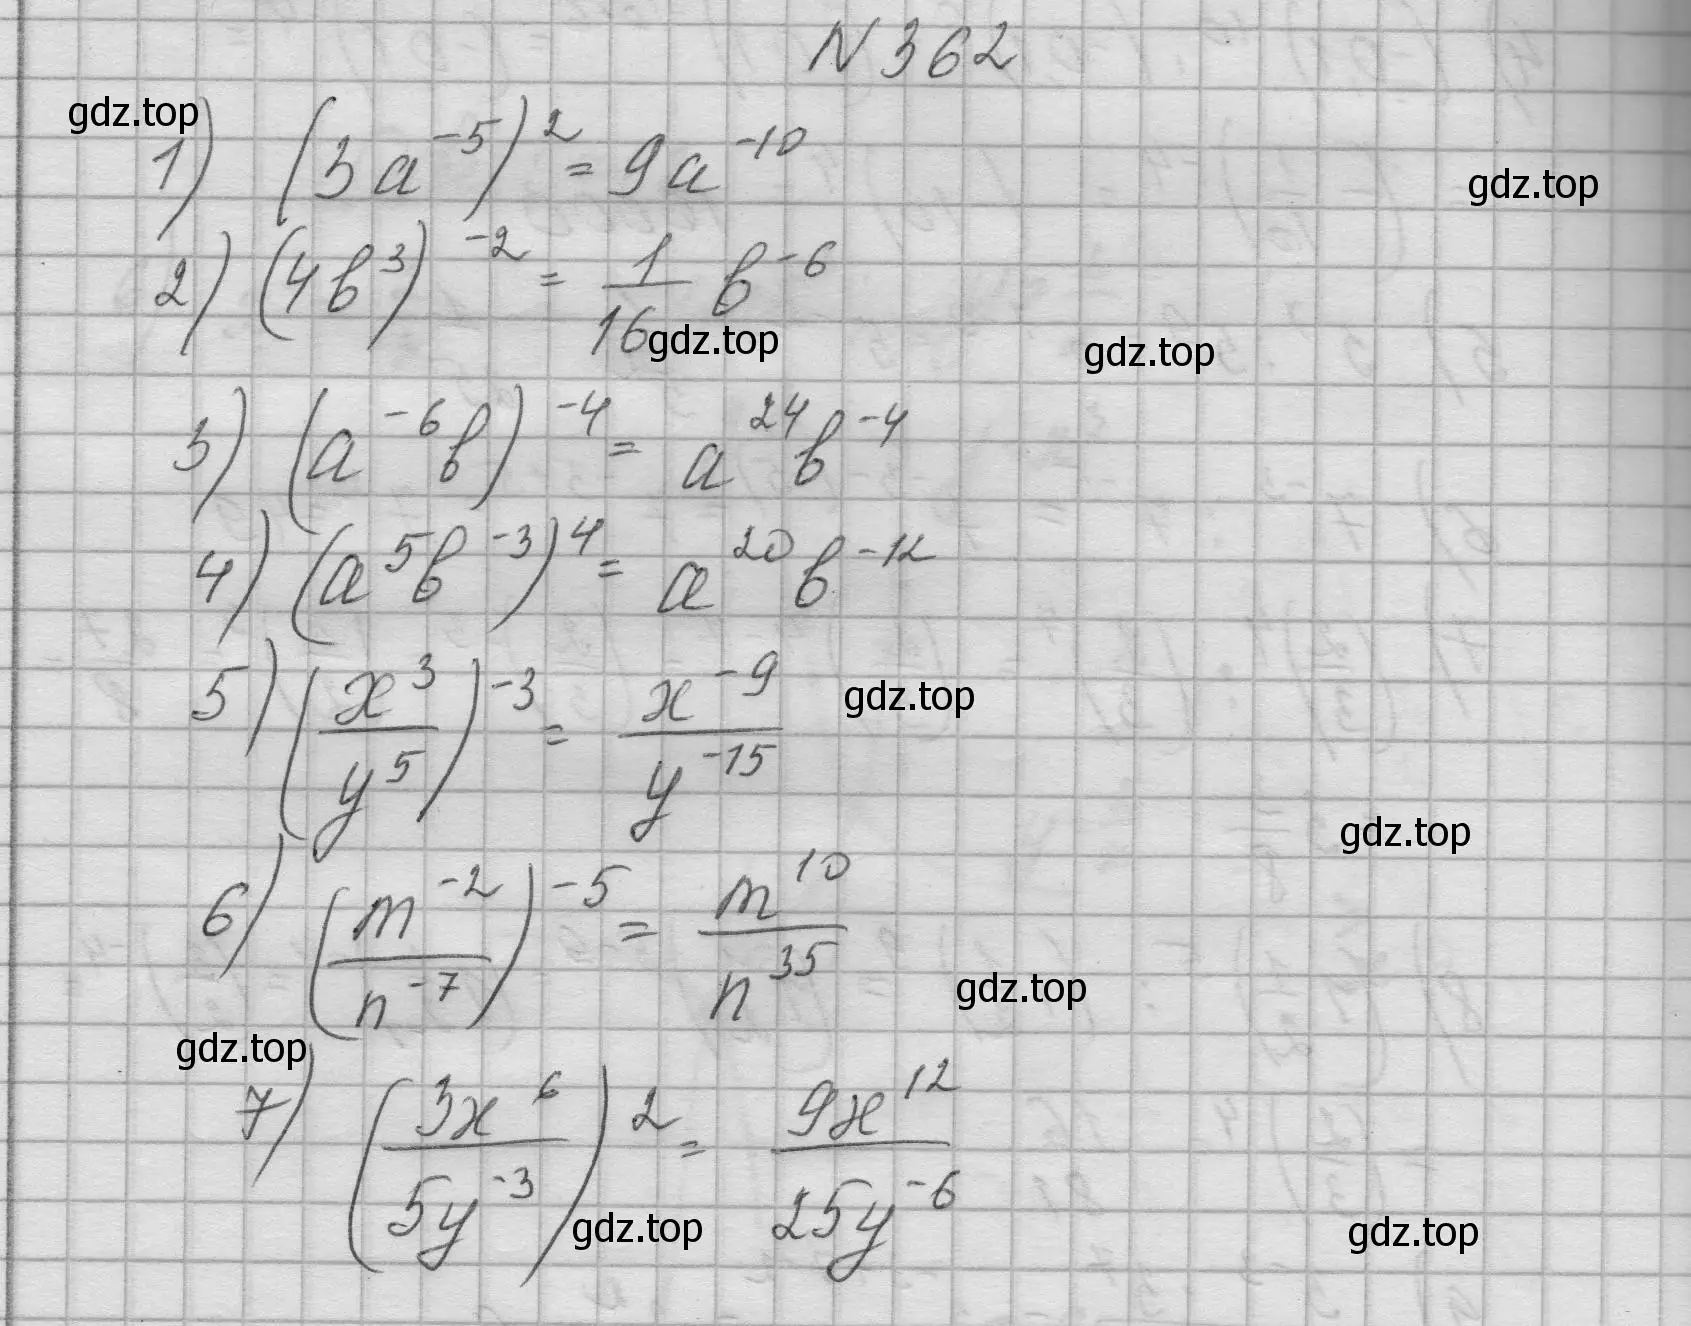 N 362
gdz.top
1) (3a^-5)^2 = 9a^-10
gdz.top
2) (4b^3)^-2 = 1/16 b^-6
gdz.top
gdz.top
3) (a^-6 b)^-4 = a^24 b^-4
4) (a^5 b^-3)^4 = a^20 b^-12
5) (x^3/y^5)^-3 = x^-9/y^-15
gdz.top
gdz.top
6) (m^-2/n^-7)^-5 = m^10/n^35
gdz.top
gdz.top
7) (3x^6/5y^-3)^2 = 9x^12/25y^-6
gdz.top
gdz.top